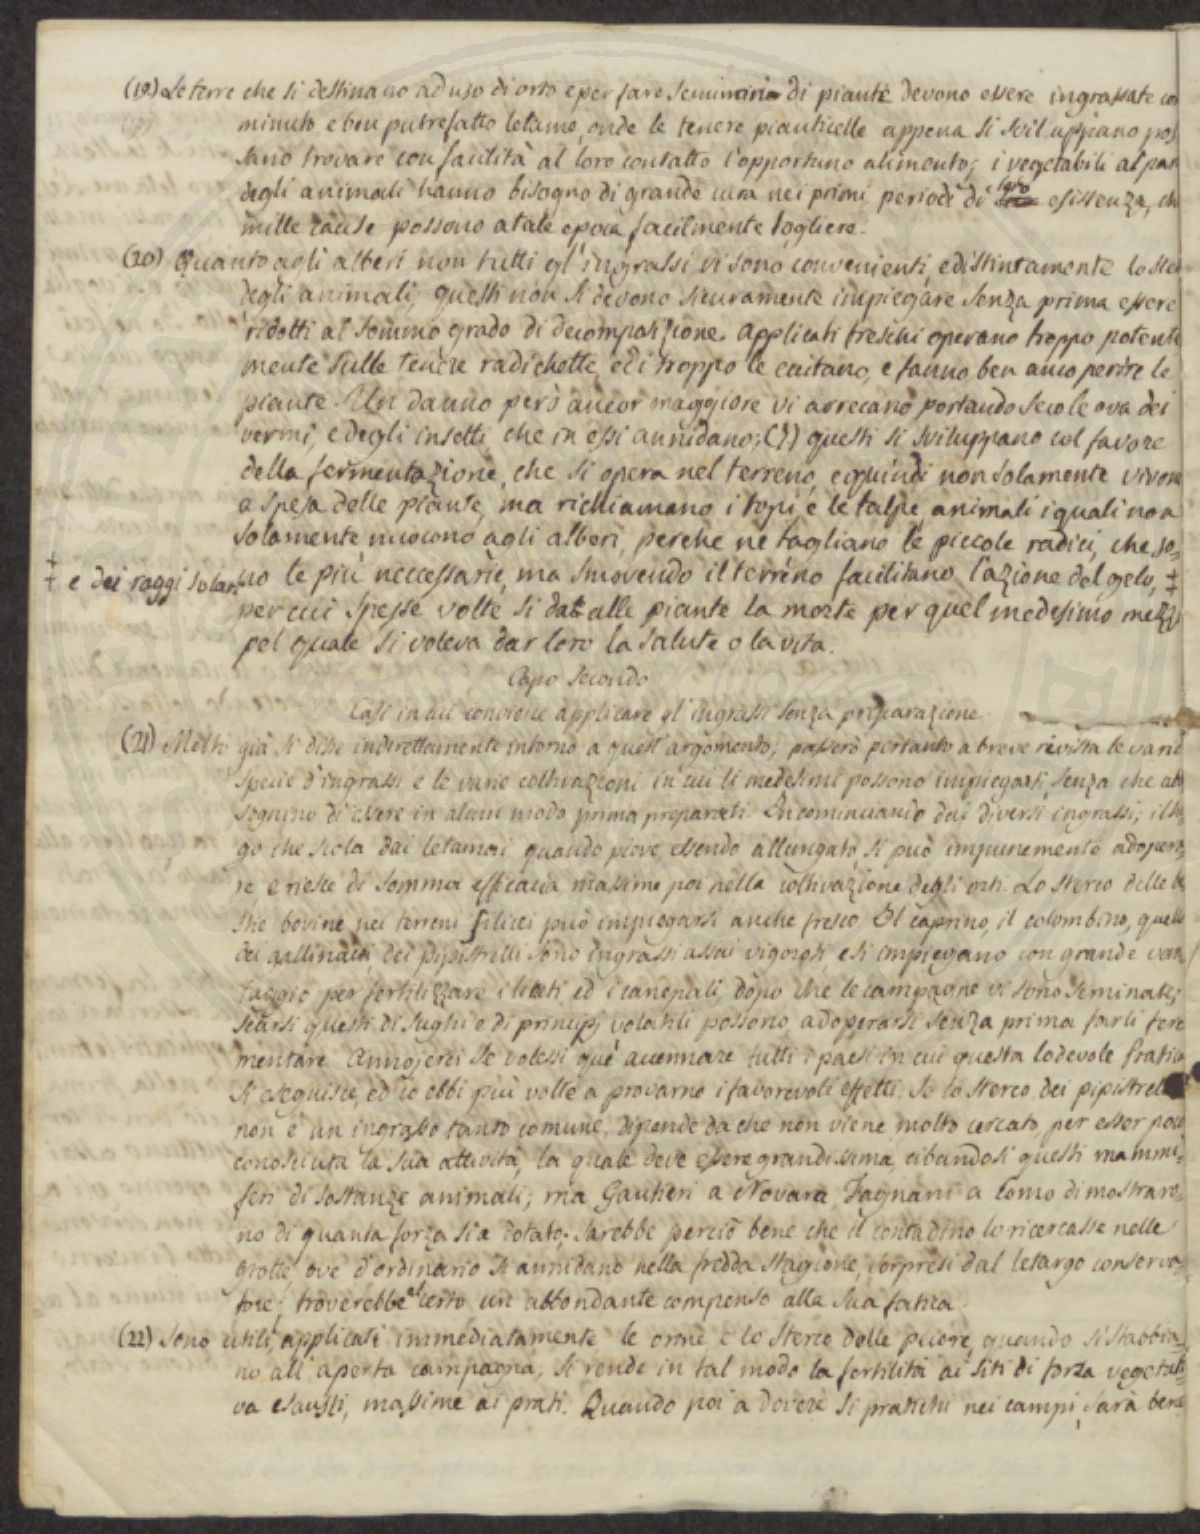 (19) Le terre che si destinano ad uso di orto e per fare seminirio di piante devono essere ingrassate con
minuto e ben putrefatto letame, onde le tenere pianticelle appena si sviluppano pos
sano trovare con facilità al loro contatto l'opportuno alimento; i vegetabili al par
degli animali hanno bisogno di grande cura nei primi periodi di loro esistenza, ch
mille cause possono a tale epoca facilmente togliere.
(20) Quanto agli alberi non tutti gl'ingrassi vi sono convenienti, e distintamente lo ster
degli animali, questi non si devono sicuramente impiegare senza prima essere
ridotti al sommo grado di decomposizione. Applicati freschi operano troppo potente
mente sulle tenere radichette, e di troppo le eccitano, e fanno ben anco perire le
piante. Un danno però ancor maggiore vi arrecano portando seco le ova dei
vermi, e degli insetti, che in essi annidano; questi si sviluppano col favore
della fermentazione, che si opera nel terreno, e quindi non solamente vivono
a spesa delle piante, ma richiamano i topi e le talpe, animali i quali non
solamente nuocono agli alberi, perche ne tagliano le piccole radici, che so=
‡ e dei raggi solari
no le più neccessarie, ma smovendo il terreno facilitano l'azione del gelo, ‡
per cui spesse volte si dà alle piante la morte per quel medesimo mezzo
pel quale si voleva dar loro la salute o la vita.
Capo Secondo
Casi in cui conviene applicare gl'ingrassi senza preparazione
(21) Molto già si disse indirettamente intorno a quest'argomento; passerò pertanto a breve rivista le varie
specie d'ingrassi e le varie coltivazioni in cui li medesimi possono impiegarsi, senza che abb
sognino di essere in alcun modo prima preparati. Incominciando dai diversi ingrassi; il su
go che scola dai letamai quando piove, essendo allungato, si può impunemente adopera
re e riesce di somma efficacia massime poi nella coltivazione degli orti. Lo sterco delle be
stie bovine nei terreni silicei può impiegarsi anche fresco. Il caprino, il colombino, quello
dei gallinacei, dei pipistrelli sono ingrassi assai vigorosi, e si impiegano con grande van
taggio per fertilizzare i liceti ed i canepali, dopo che le campagne vi sono seminate;
scarsi questi di sughi e di principj volatili possono adoperarsi senza prima farli fer
mentare. Annojerei se volessi quì accennare tutti i paesi in cui questa lodevole pratica
si eseguisce, ed io ebbi più volte a provarne i favorevoli effetti. Se lo sterco dei pipistrelli
non è un ingrasso tanto comune, dipende da che non viene molto cercato per esser poco
conosciuta la sua attività, la quale deve essere grandissima, cibandosi questi mammi=
feri di sostanze animali; ma Gautieri a Novara, Fagnani a Como dimostraro=
no di quanta forza sia dotato; sarebbe perciò bene che il contadino lo ricercasse nelle
grotte, ove d'ordinario si annidano nella fredda stagione, sorpresi dal letargo conserva=
tore; troverebbe al certo un abbondante compenso alla sua fatica.
(22) Sono utili, applicati immediatamente le orine e lo sterco delle pecore, quando si stabbia
no all'aperta campagna; si rende in tal modo la fertilità ai siti di forza vegetati
va esausti, massime ai prati. Quando poi a dovere si pratichi nei campi, sarà bene